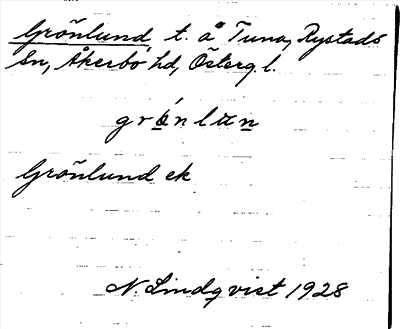 Grönlund t. å Tuna, Rystads
sn, Åkerbo hd, Österg. l.
Grönlund ek
N. Lindqvist 1928